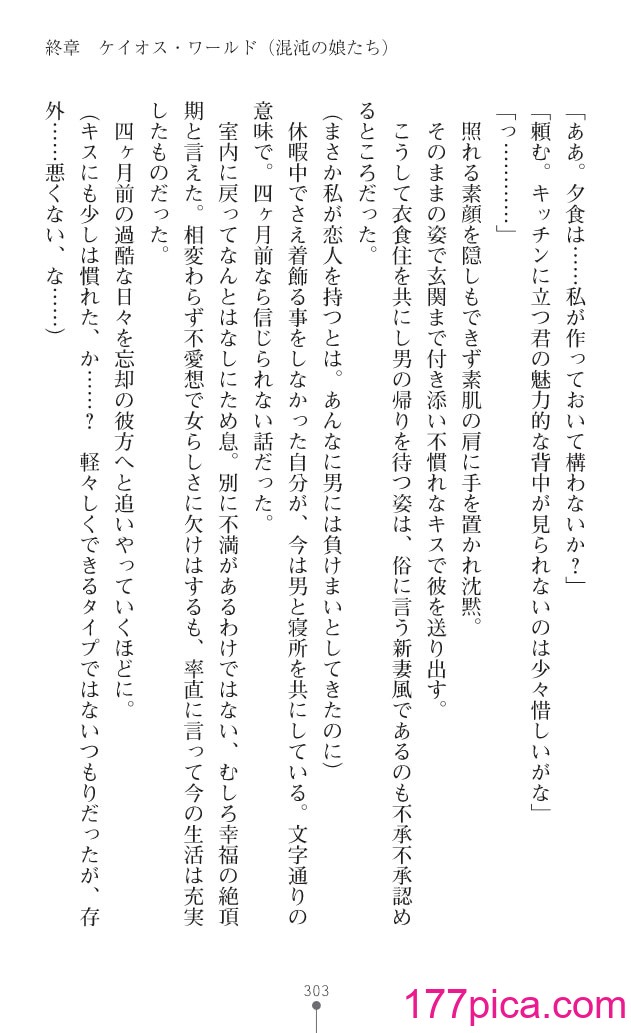 終章　ケイオス・ワールド（混沌の娘たち）
「ああ。夕食は……私が作っておいて構わないか？」
「頼む。キッチンに立つ君の魅力的な背中が見られないのは少々惜しいがな」
「っ…………」
照れる素顔を隠しもできず素肌の肩に手を置かれ沈黙。
そのままの姿で玄関まで付き添い不慣れなキスで彼を送り出す。
こうして衣食住を共にし男の帰りを待つ姿は、俗に言う新妻風であるのも不承不承認め
るところだった。
（まさか私が恋人を持つとは。あんなに男には負けまいとしてきたのに）
休暇中でさえ着飾る事をしなかった自分が、今は男と寝所を共にしている。文字通りの
意味で。四ヶ月前なら信じられない話だった。
室内に戻ってなんとはなしにため息。別に不満があるわけではない、むしろ幸福の絶頂
期と言えた。相変わらず不愛想で女らしさに欠けはするも、率直に言って今の生活は充実
したものだった。
四ヶ月前の過酷な日々を忘却の彼方へと追いやっていくほどに。
（キスにも少しは慣れた、か……？　軽々しくできるタイプではないつもりだったが、存
外……悪くない、な……）
303
177pica.com